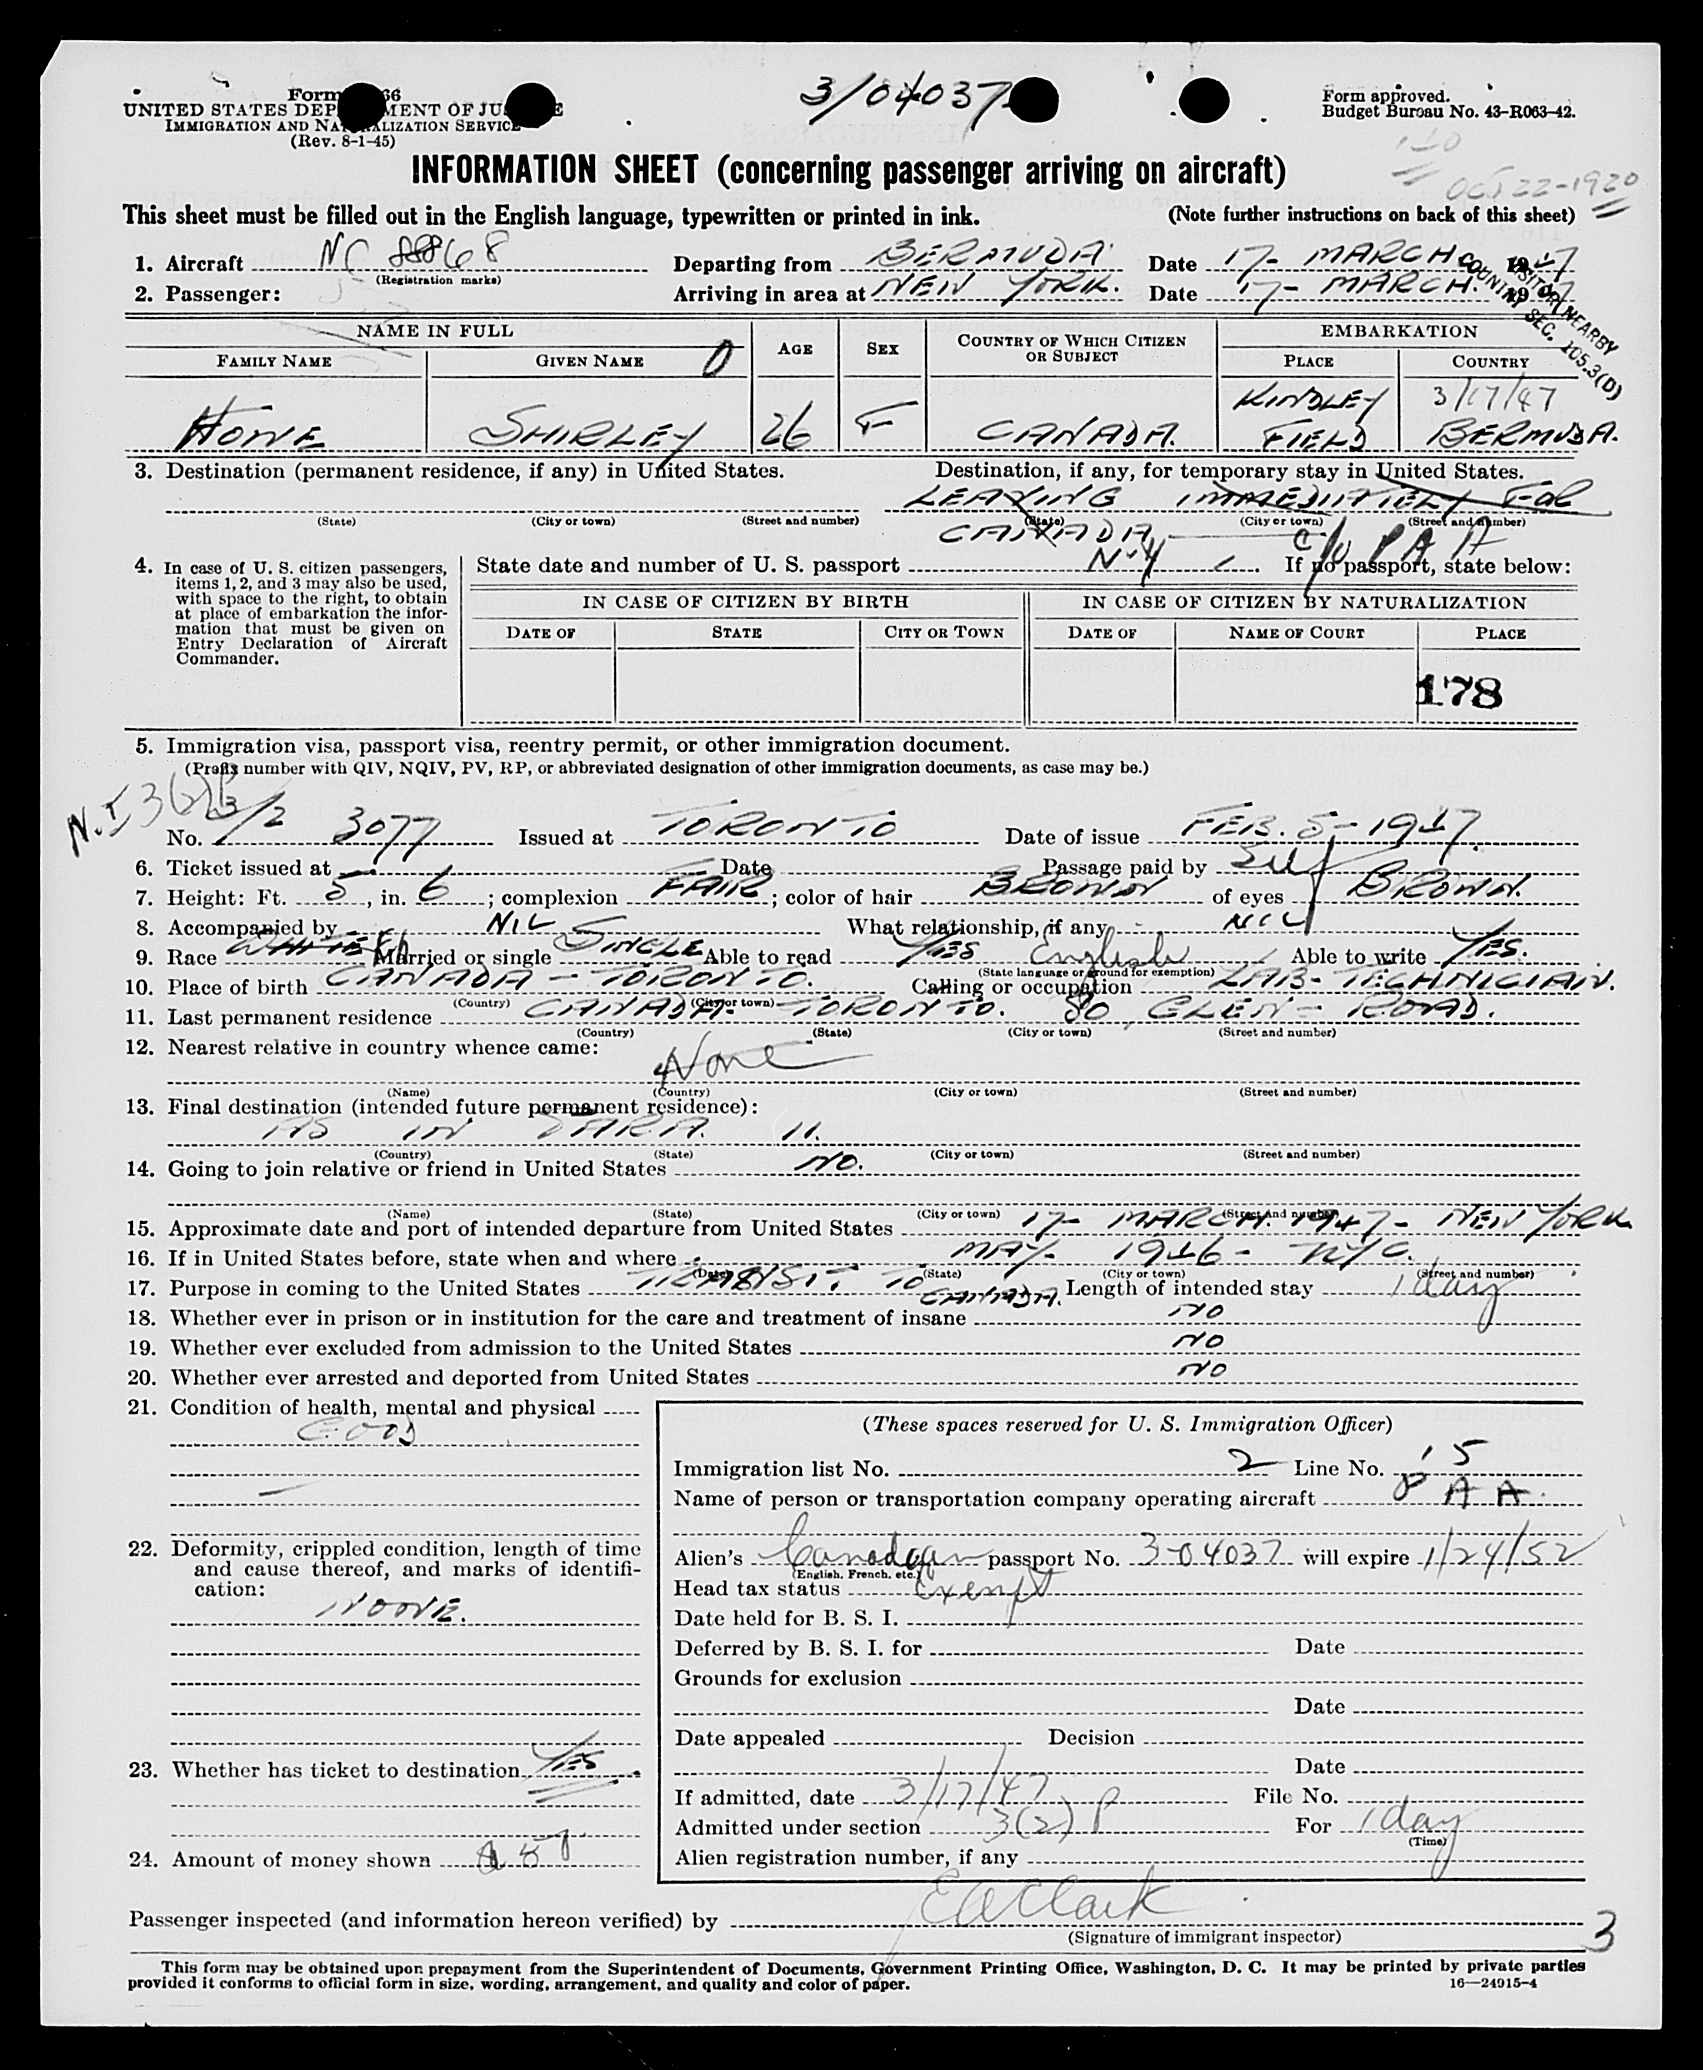 3/04037
Form 66
UNITED STATES DEP MENT OF JU E
IMMIGRATION AND NA ALIZATION SERVICE
(Rev. 8-1-45)
Form approved.
Budget Bureau No. 43-R063-42.
INFORMATION SHEET (concerning passenger arriving on aircraft)
Oct 22-1920
This sheet must be filled out in the English language, typewritten or printed in ink. (Note further instructions on back of this sheet)
1. Aircraft NC 88868 Departing from BERMUDA. Date 17- MARCH 1947
(Registration marks)
2. Passenger: Arriving in area at NEW YORK. Date 17- MARCH. 1947
VISITOR NEARBY
COUNTRY SEC. 105.3(D)
NAME IN FULL AGE SEX COUNTRY OF WHICH CITIZEN OR SUBJECT EMBARKATION
FAMILY NAME GIVEN NAME 0 PLACE COUNTRY
KINDLEY 3/17/47
HOWE SHIRLEY 26 F CANADA. FIELD BERMUDA.
3. Destination (permanent residence, if any) in United States. Destination, if any, for temporary stay in United States.
LEAVING IMMEDIATELY FOR
(State) (City or town) (Street and number) (State) (City or town) (Street and number)
CANADA c/o P A A
N.Y
4. In case of U. S. citizen passengers, items 1, 2, and 3 may also be used, with space to the right, to obtain at place of embarkation the information that must be given on Entry Declaration of Aircraft Commander.
State date and number of U. S. passport If no passport, state below:
IN CASE OF CITIZEN BY BIRTH IN CASE OF CITIZEN BY NATURALIZATION
DATE OF STATE CITY OR TOWN DATE OF NAME OF COURT PLACE
178
5. Immigration visa, passport visa, reentry permit, or other immigration document.
(Prefix number with QIV, NQIV, PV, RP, or abbreviated designation of other immigration documents, as case may be.)
No. 3077 Issued at TORONTO Date of issue FEB. 5-1947.
6. Ticket issued at Date Passage paid by Self
7. Height: Ft. 5, in. 6; complexion FAIR; color of hair BROWN of eyes BROWN.
8. Accompanied by NIL What relationship, if any NIL
9. Race WHITE Married or single SINGLE Able to read YES English Able to write YES.
(State language or ground for exemption)
10. Place of birth CANADA - TORONTO. Calling or occupation LAB- TECHNICIAN.
(Country) (City or town)
11. Last permanent residence CANADA. TORONTO. 80, GLEN- ROAD.
(Country) (State) (City or town) (Street and number)
12. Nearest relative in country whence came:
None
(Name) (Country) (City or town) (Street and number)
13. Final destination (intended future permanent residence):
AS IN PARA. 11.
(Country) (State) (City or town) (Street and number)
14. Going to join relative or friend in United States NO.
(Name) (State) (City or town) (Street and number)
15. Approximate date and port of intended departure from United States 17- MARCH. 1947- NEW YORK.
16. If in United States before, state when and where MAY- 1946- NYC.
(Date) (State) (City or town) (Street and number)
17. Purpose in coming to the United States TRANSIT TO CANADA. Length of intended stay 1 day
18. Whether ever in prison or in institution for the care and treatment of insane NO
19. Whether ever excluded from admission to the United States NO
20. Whether ever arrested and deported from United States NO
21. Condition of health, mental and physical
GOOD
22. Deformity, crippled condition, length of time and cause thereof, and marks of identification:
NONE.
23. Whether has ticket to destination YES
24. Amount of money shown
(These spaces reserved for U. S. Immigration Officer)
Immigration list No. 2 Line No. 15
Name of person or transportation company operating aircraft P A A.
Alien's Canadian passport No. 3-04037 will expire 1/24/52
(English, French, etc.)
Head tax status Exempt
Date held for B. S. I.
Deferred by B. S. I. for Date
Grounds for exclusion
Date
Date appealed Decision
Date
If admitted, date 3/17/47 File No.
Admitted under section 3(2) P For 1 day
(Time)
Alien registration number, if any
Passenger inspected (and information hereon verified) by E A Clark
(Signature of immigrant inspector)
3
This form may be obtained upon prepayment from the Superintendent of Documents, Government Printing Office, Washington, D. C. It may be printed by private parties
provided it conforms to official form in size, wording, arrangement, and quality and color of paper. 16—24915-4